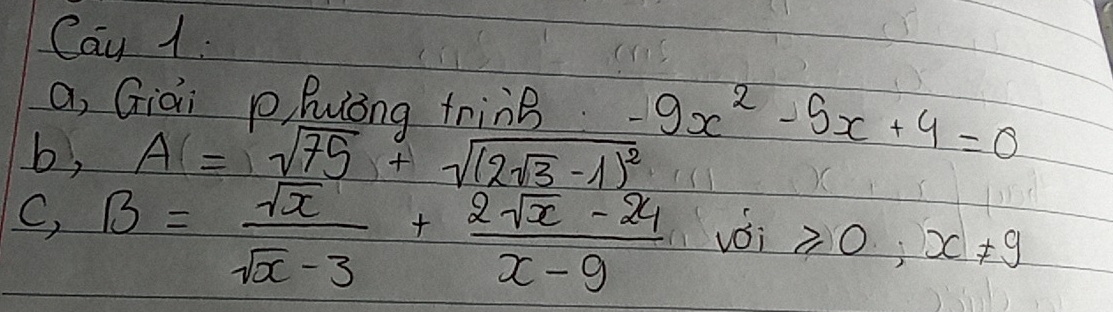 Câu 1:
a, Giải phương trình : -9x² - 5x + 4 = 0
b, A = √75 + √((2√3 - 1)²)
c, B = √x/(√x - 3) + (2√x - 24)/(x - 9) với ≥ 0 ; x ≠ 9